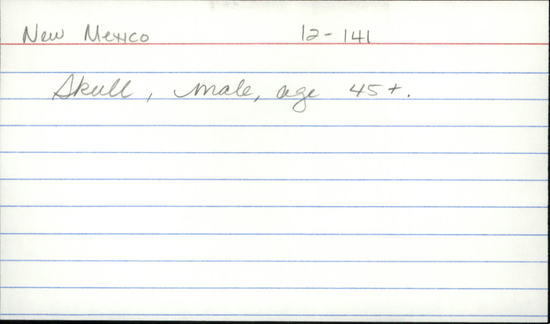 New Mexico 12-141
Skull, male, age 45+.